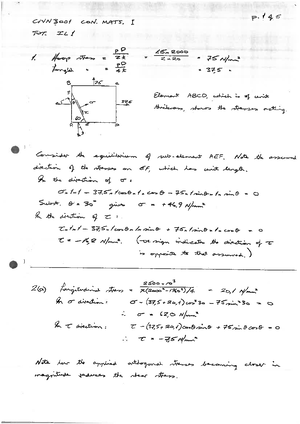 p. 1 of 5
CIVN3001 CON. MATS. I
TUT. IL1
1. Hoop stress = pD/2t = 1.5 × 2000/2 × 20 = 75 N/mm²
= pD/4t = 37.5
75
37.5
Element ABCD, which is of unit
thickness, shows the stresses acting
Consider the equilibrium of sub-element AEF. Note the assumed
direction of the stresses on EF, which has unit length.
In the direction of σ:
σ.1.1 - 37.5.1cosθ.1.cosθ - 75.1sinθ.1.sinθ = 0
Subst. θ = 30° gives σ = +46.9 N/mm²
In the direction of τ:
τ.1.1 - 37.5.1cosθ.1.sinθ + 75.1sinθ.1.cosθ = 0
τ = -16.2 N/mm². (-ve sign indicates the direction of τ
is opposite to that assumed.)
2(a) Longitudinal stress = = 20.1 N/mm²
In σ direction: σ - (37.5+20.1)cos²30 - 75sin²30 = 0
∴ σ = 62.0 N/mm²
In τ direction: τ - (37.5+20.1)cosθsinθ + 75sinθcosθ = 0
∴ τ = -7.5 N/mm²
Note how the applied orthogonal stresses becoming closer in
magnitude reduces the shear stress.